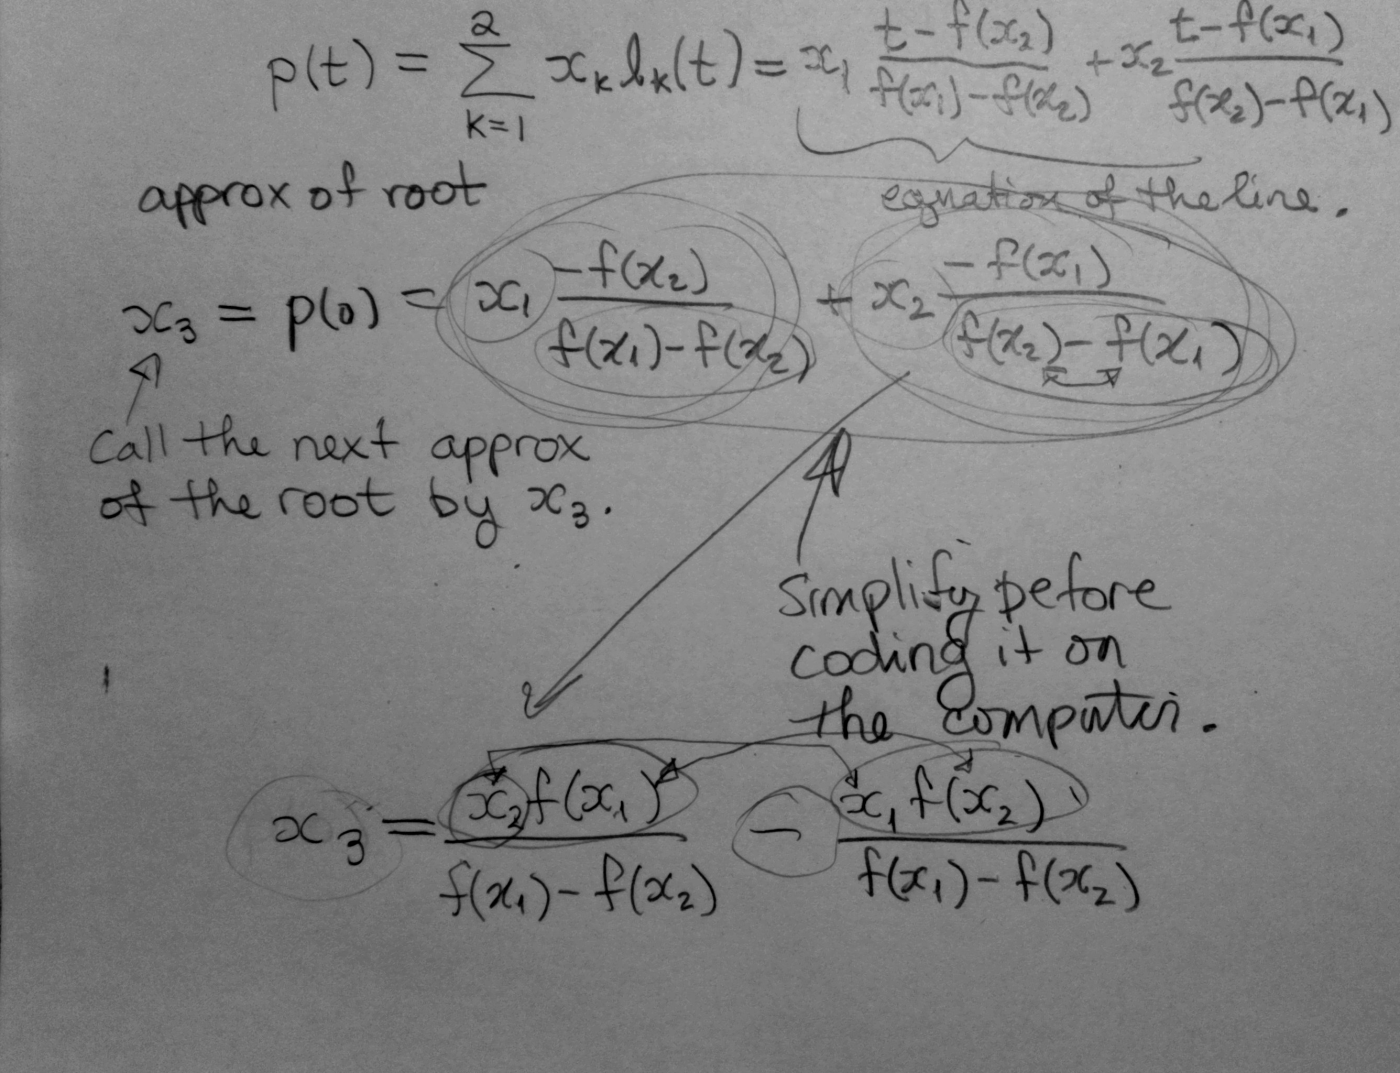 p(t) = ∑_{k=1}^{2} x_k l_k(t) = x_1 \frac{t - f(x_2)}{f(x_1) - f(x_2)} + x_2 \frac{t - f(x_1)}{f(x_2) - f(x_1)}
equation of the line.
approx of root
x_3 = p(0) = x_1 \frac{-f(x_2)}{f(x_1) - f(x_2)} + x_2 \frac{-f(x_1)}{f(x_2) - f(x_1)}
Call the next approx
of the root by x_3.
Simplify before
coding it on
the computer.
x_3 = \frac{x_2 f(x_1)}{f(x_1) - f(x_2)} - \frac{x_1 f(x_2)}{f(x_1) - f(x_2)}